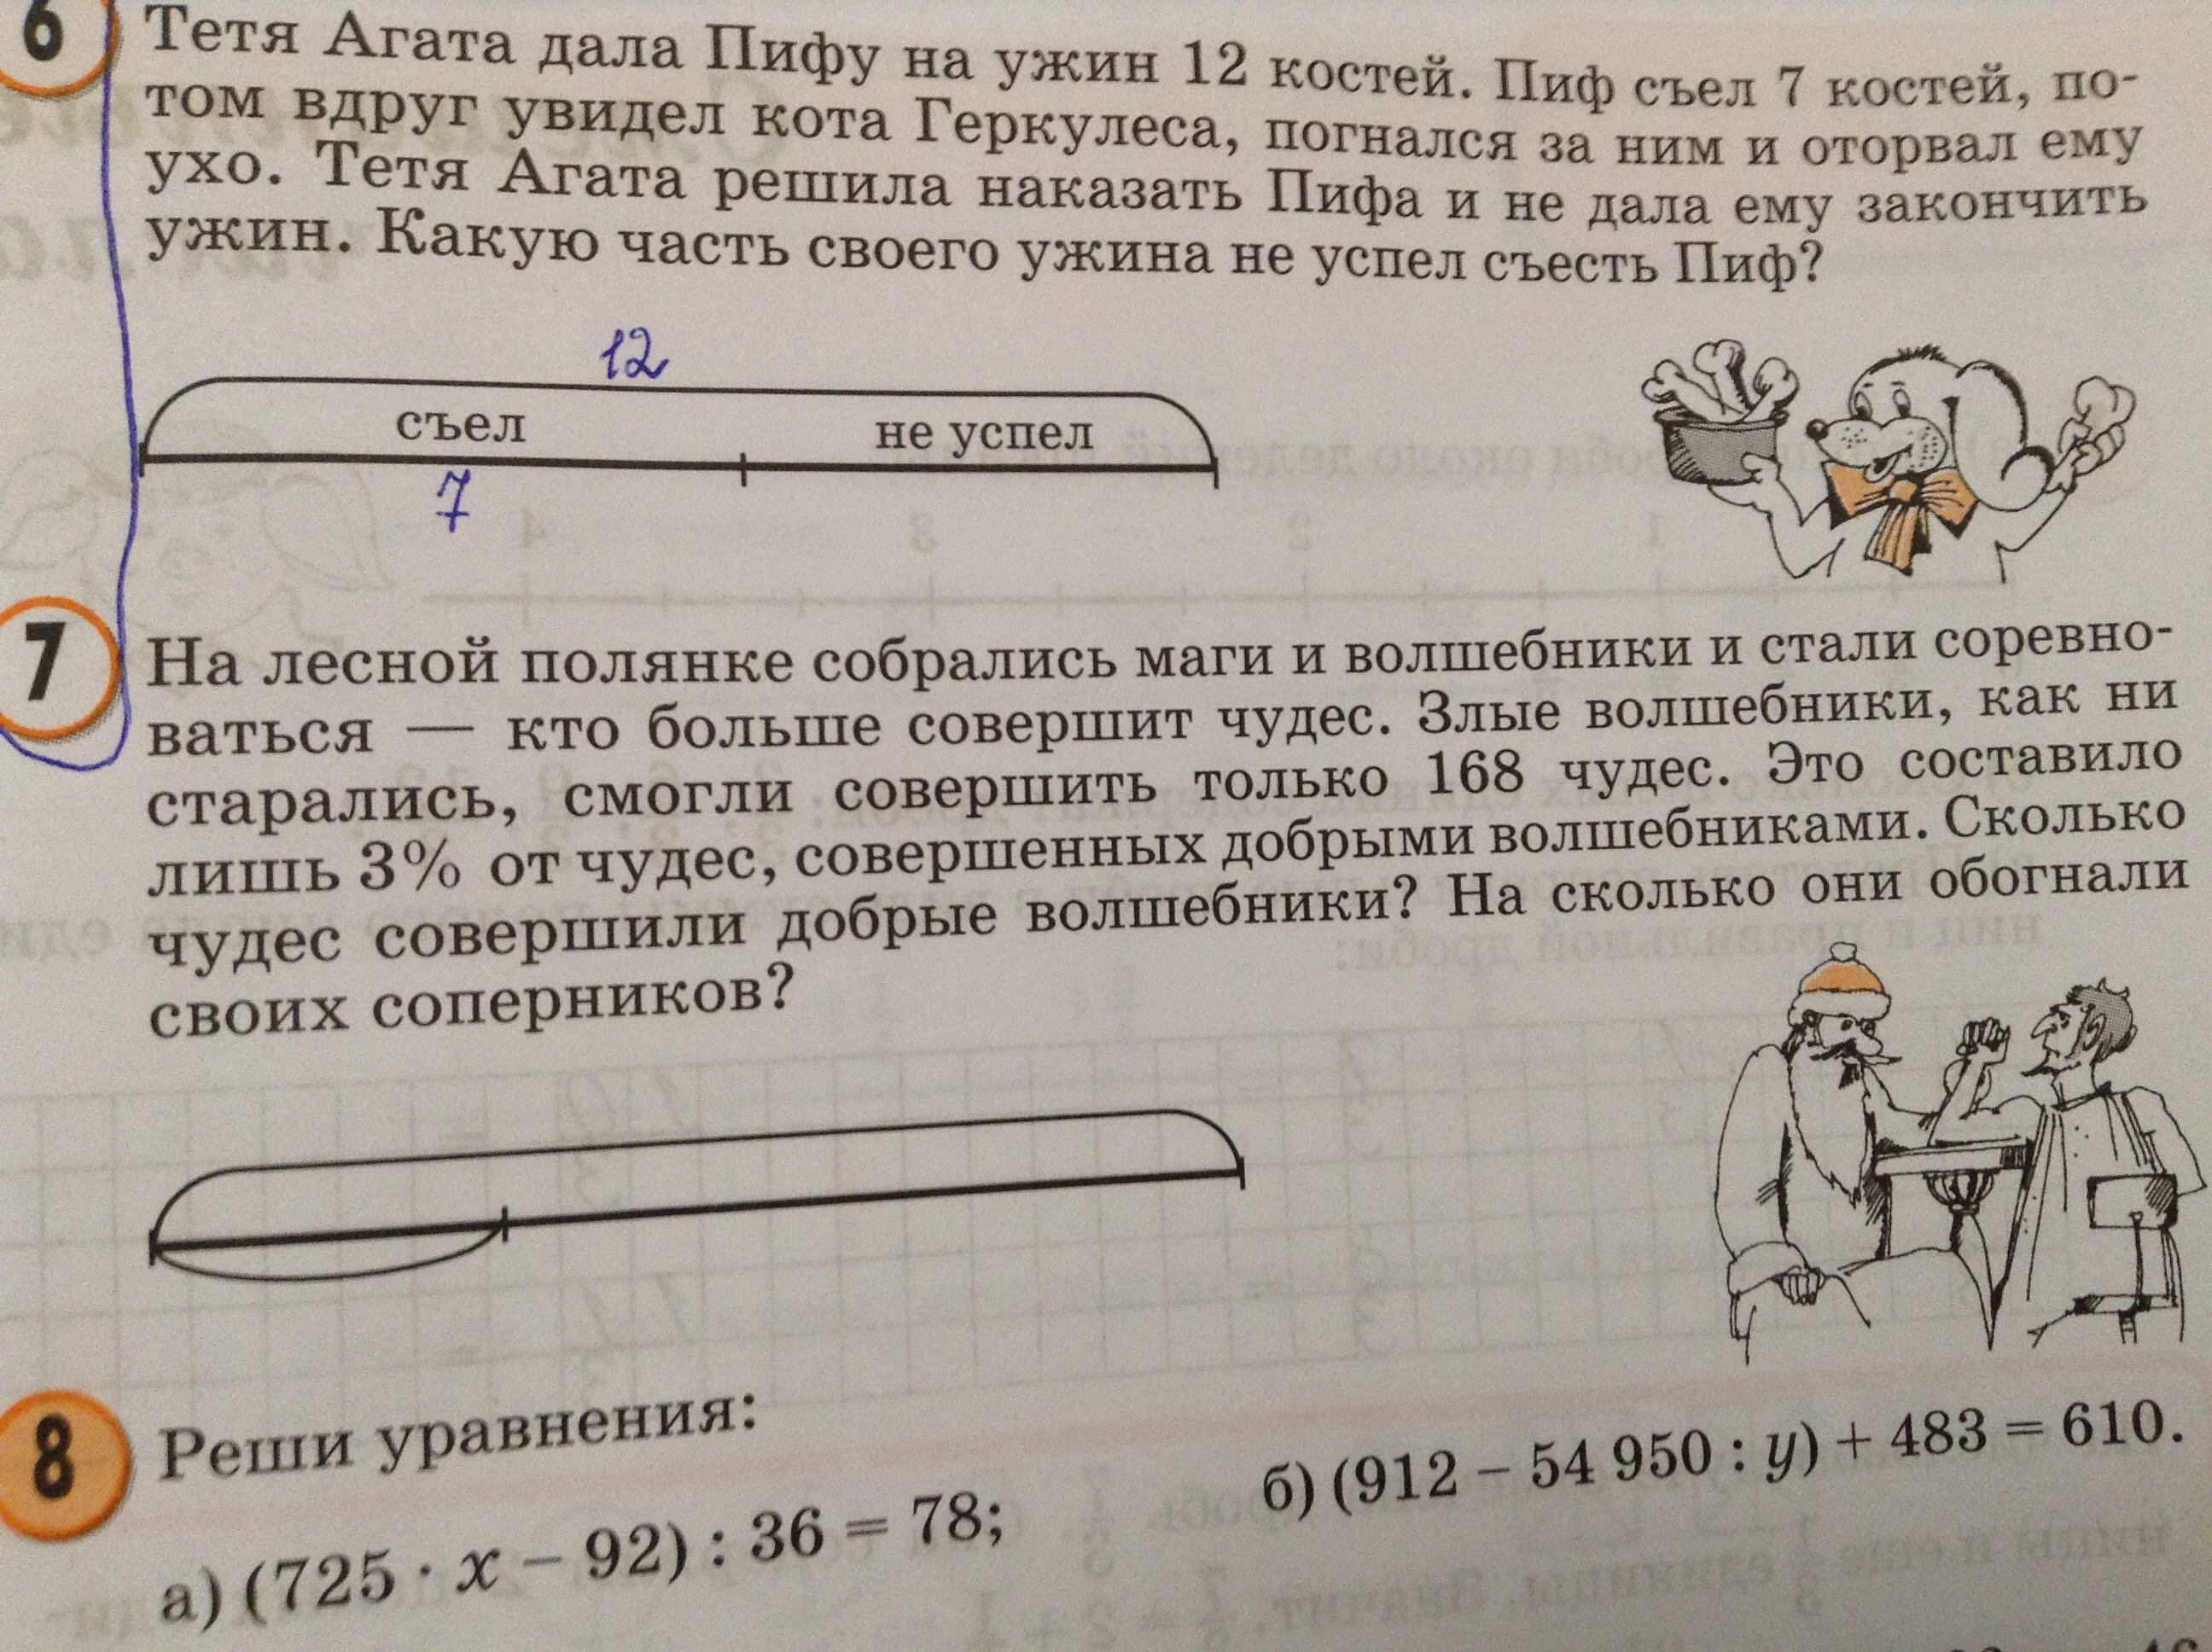 6 Тетя Агата дала Пифу на ужин 12 костей. Пиф съел 7 костей, по-
том вдруг увидел кота Геркулеса, погнался за ним и оторвал ему
ухо. Тетя Агата решила наказать Пифа и не дала ему закончить
ужин. Какую часть своего ужина не успел съесть Пиф?
12
съел не успел
7
7 На лесной полянке собрались маги и волшебники и стали соревно-
ваться — кто больше совершит чудес. Злые волшебники, как ни
старались, смогли совершить только 168 чудес. Это составило
лишь 3% от чудес, совершенных добрыми волшебниками. Сколько
чудес совершили добрые волшебники? На сколько они обогнали
своих соперников?
8 Реши уравнения:
а) (725 · x − 92) : 36 = 78; б) (912 − 54 950 : y) + 483 = 610.